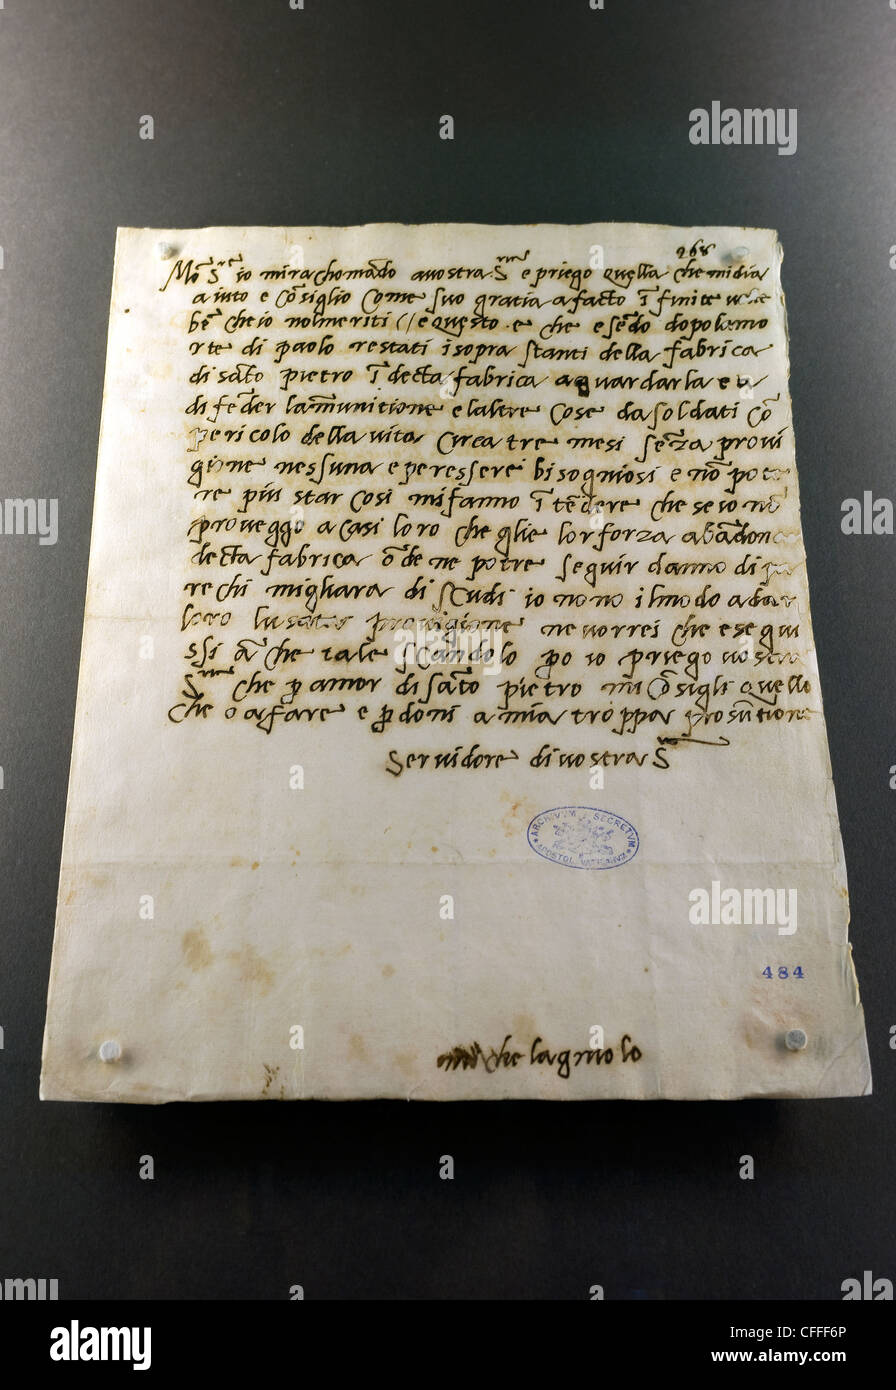 268
Mo S.re io mi rachomādo a vostra S.ria e priego quella che mi dia
aiuto e cōsiglio come suo gratia a facto īfinite
bē che io nol meriti // e questo e che esēdo dopo la mo
rte di paolo restati i sopra stanti della fabrica
di sāto pietro ī decta fabrica a guardarla e a
difēder la munitione e laltre cose da soldati cō
pericolo della vita circa tre mesi sēza provi
gione nessuna e per essere bisogniosi e nō pote
re piu star cosi mi fanno ītēdere che se io nō
proveggo a casi loro che glie lor forza abādona
decta fabrica ōde ne potre seguir danno di pa
rechi migliara di scudi io nō ō il modo a dar
loro lusata provigione ne vorrei che esegui
ssi āche tale scandolo po io priego vostra
S.ria che p amor di sāto pietro mi cōsigli quello
che o a fare e pdoni a mia troppa prosūtione
Servidore di vostra S.ria
ARCHIVVM SECRETVM
APOSTOL. VATICANVM
484
michelagniolo
a alamy
alamy
CFFF6P
www.alamy.com